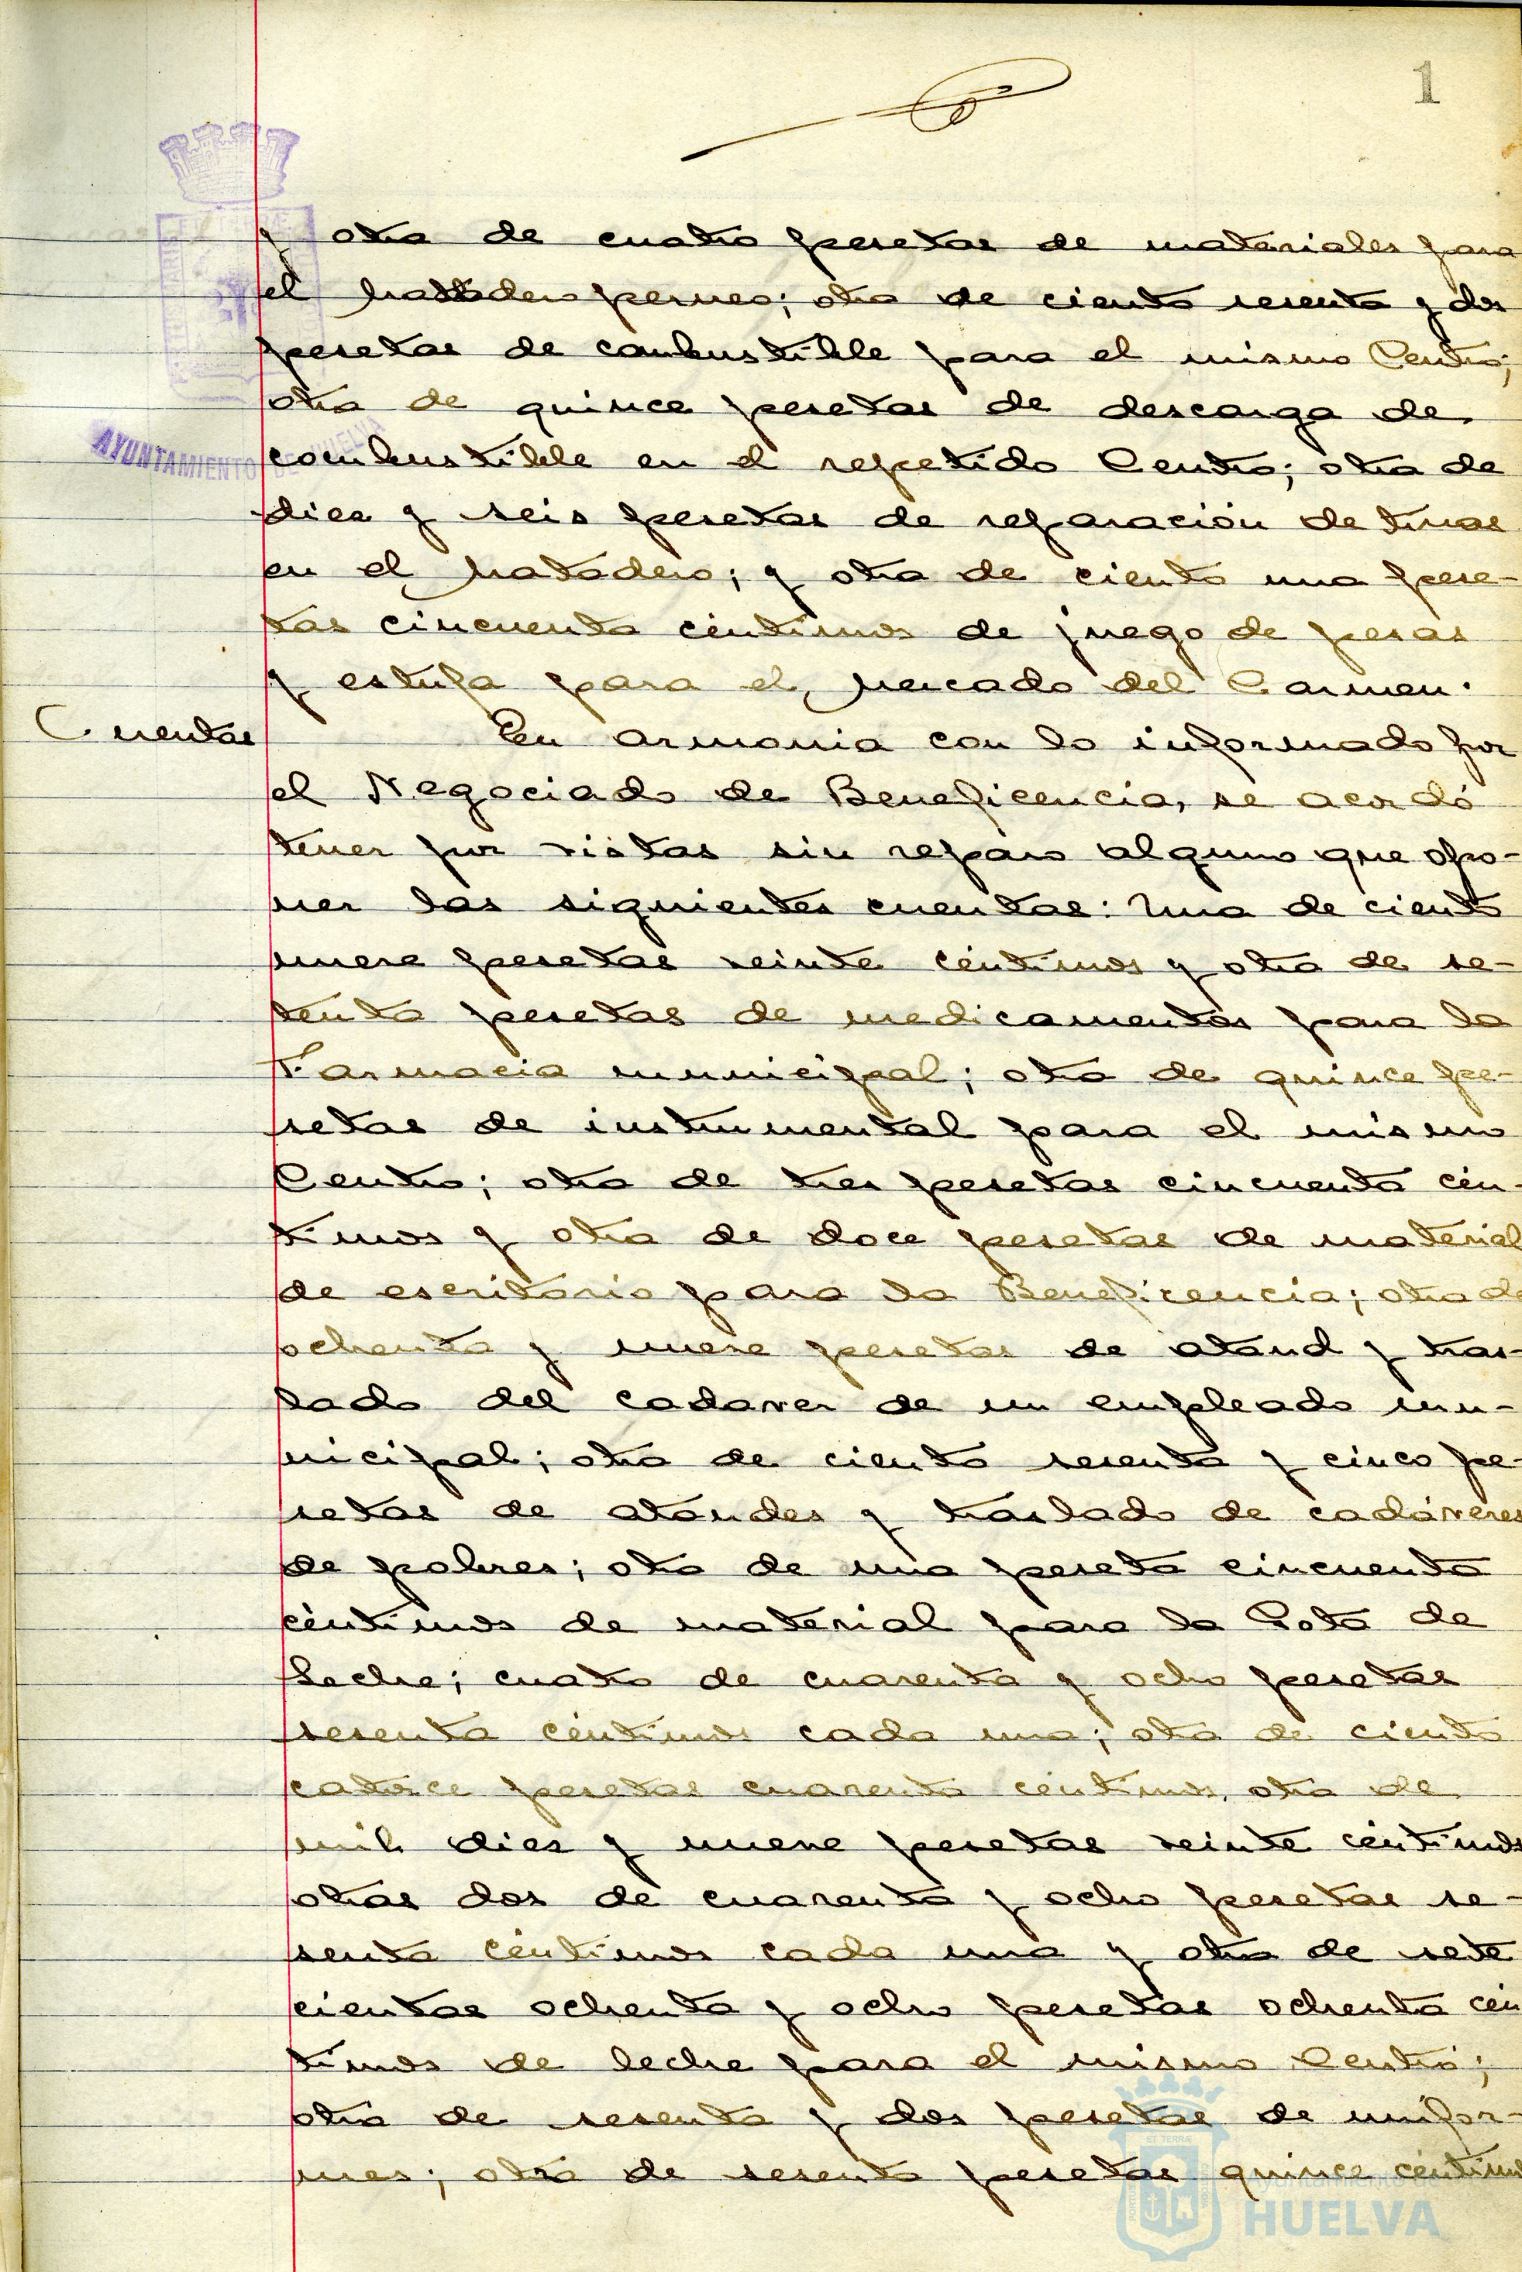 1
y otra de cuatro pesetas de materiales para
el Matadero perneo; otra de ciento sesenta y dos
pesetas de combustible para el mismo Centro;
otra de quince pesetas de descarga de
combustible en el repetido Centro; otra de
diez y seis pesetas de reparación de tinas
en el Matadero; y otra de ciento una pese-
tas cincuenta céntimos de juego de pesas
y estufa para el Mercado del Carmen.
Cuentas
En armonia con lo informado por
el Negociado de Beneficencia, se acordó
tener por vistas sin reparo alguno que opo-
ner las siguientes cuentas: Una de ciento
nueve pesetas veinte céntimos y otra de se-
tenta pesetas de medicamentos para la
Farmacia municipal; otra de quince pe-
setas de instrumental para el mismo
Centro; otra de tres pesetas cincuenta cén-
timos y otra de doce pesetas de material
de escritorio para la Beneficencia; otra de
ochenta y nueve pesetas de ataud y tras-
lado del cadaver de un empleado mu-
nicipal; otra de ciento sesenta y cinco pe-
setas de ataudes y traslado de cadáveres
de pobres; otra de una peseta cincuenta
céntimos de material para la Gota de
Leche; cuatro de cuarenta y ocho pesetas
sesenta céntimos cada una; otra de ciento
catorce pesetas cuarenta céntimos, otra de
mil diez y nueve pesetas veinte céntimos
otras dos de cuarenta y ocho pesetas se-
senta céntimos cada una y otra de sete
cientas ochenta y ocho pesetas ochenta cén
timos de leche para el mismo Centro;
otra de sesenta y dos pesetas de unifor-
mes; otra de sesenta pesetas quince céntimos
AYUNTAMIENTO DE HUELVA
Ayuntamiento de
HUELVA